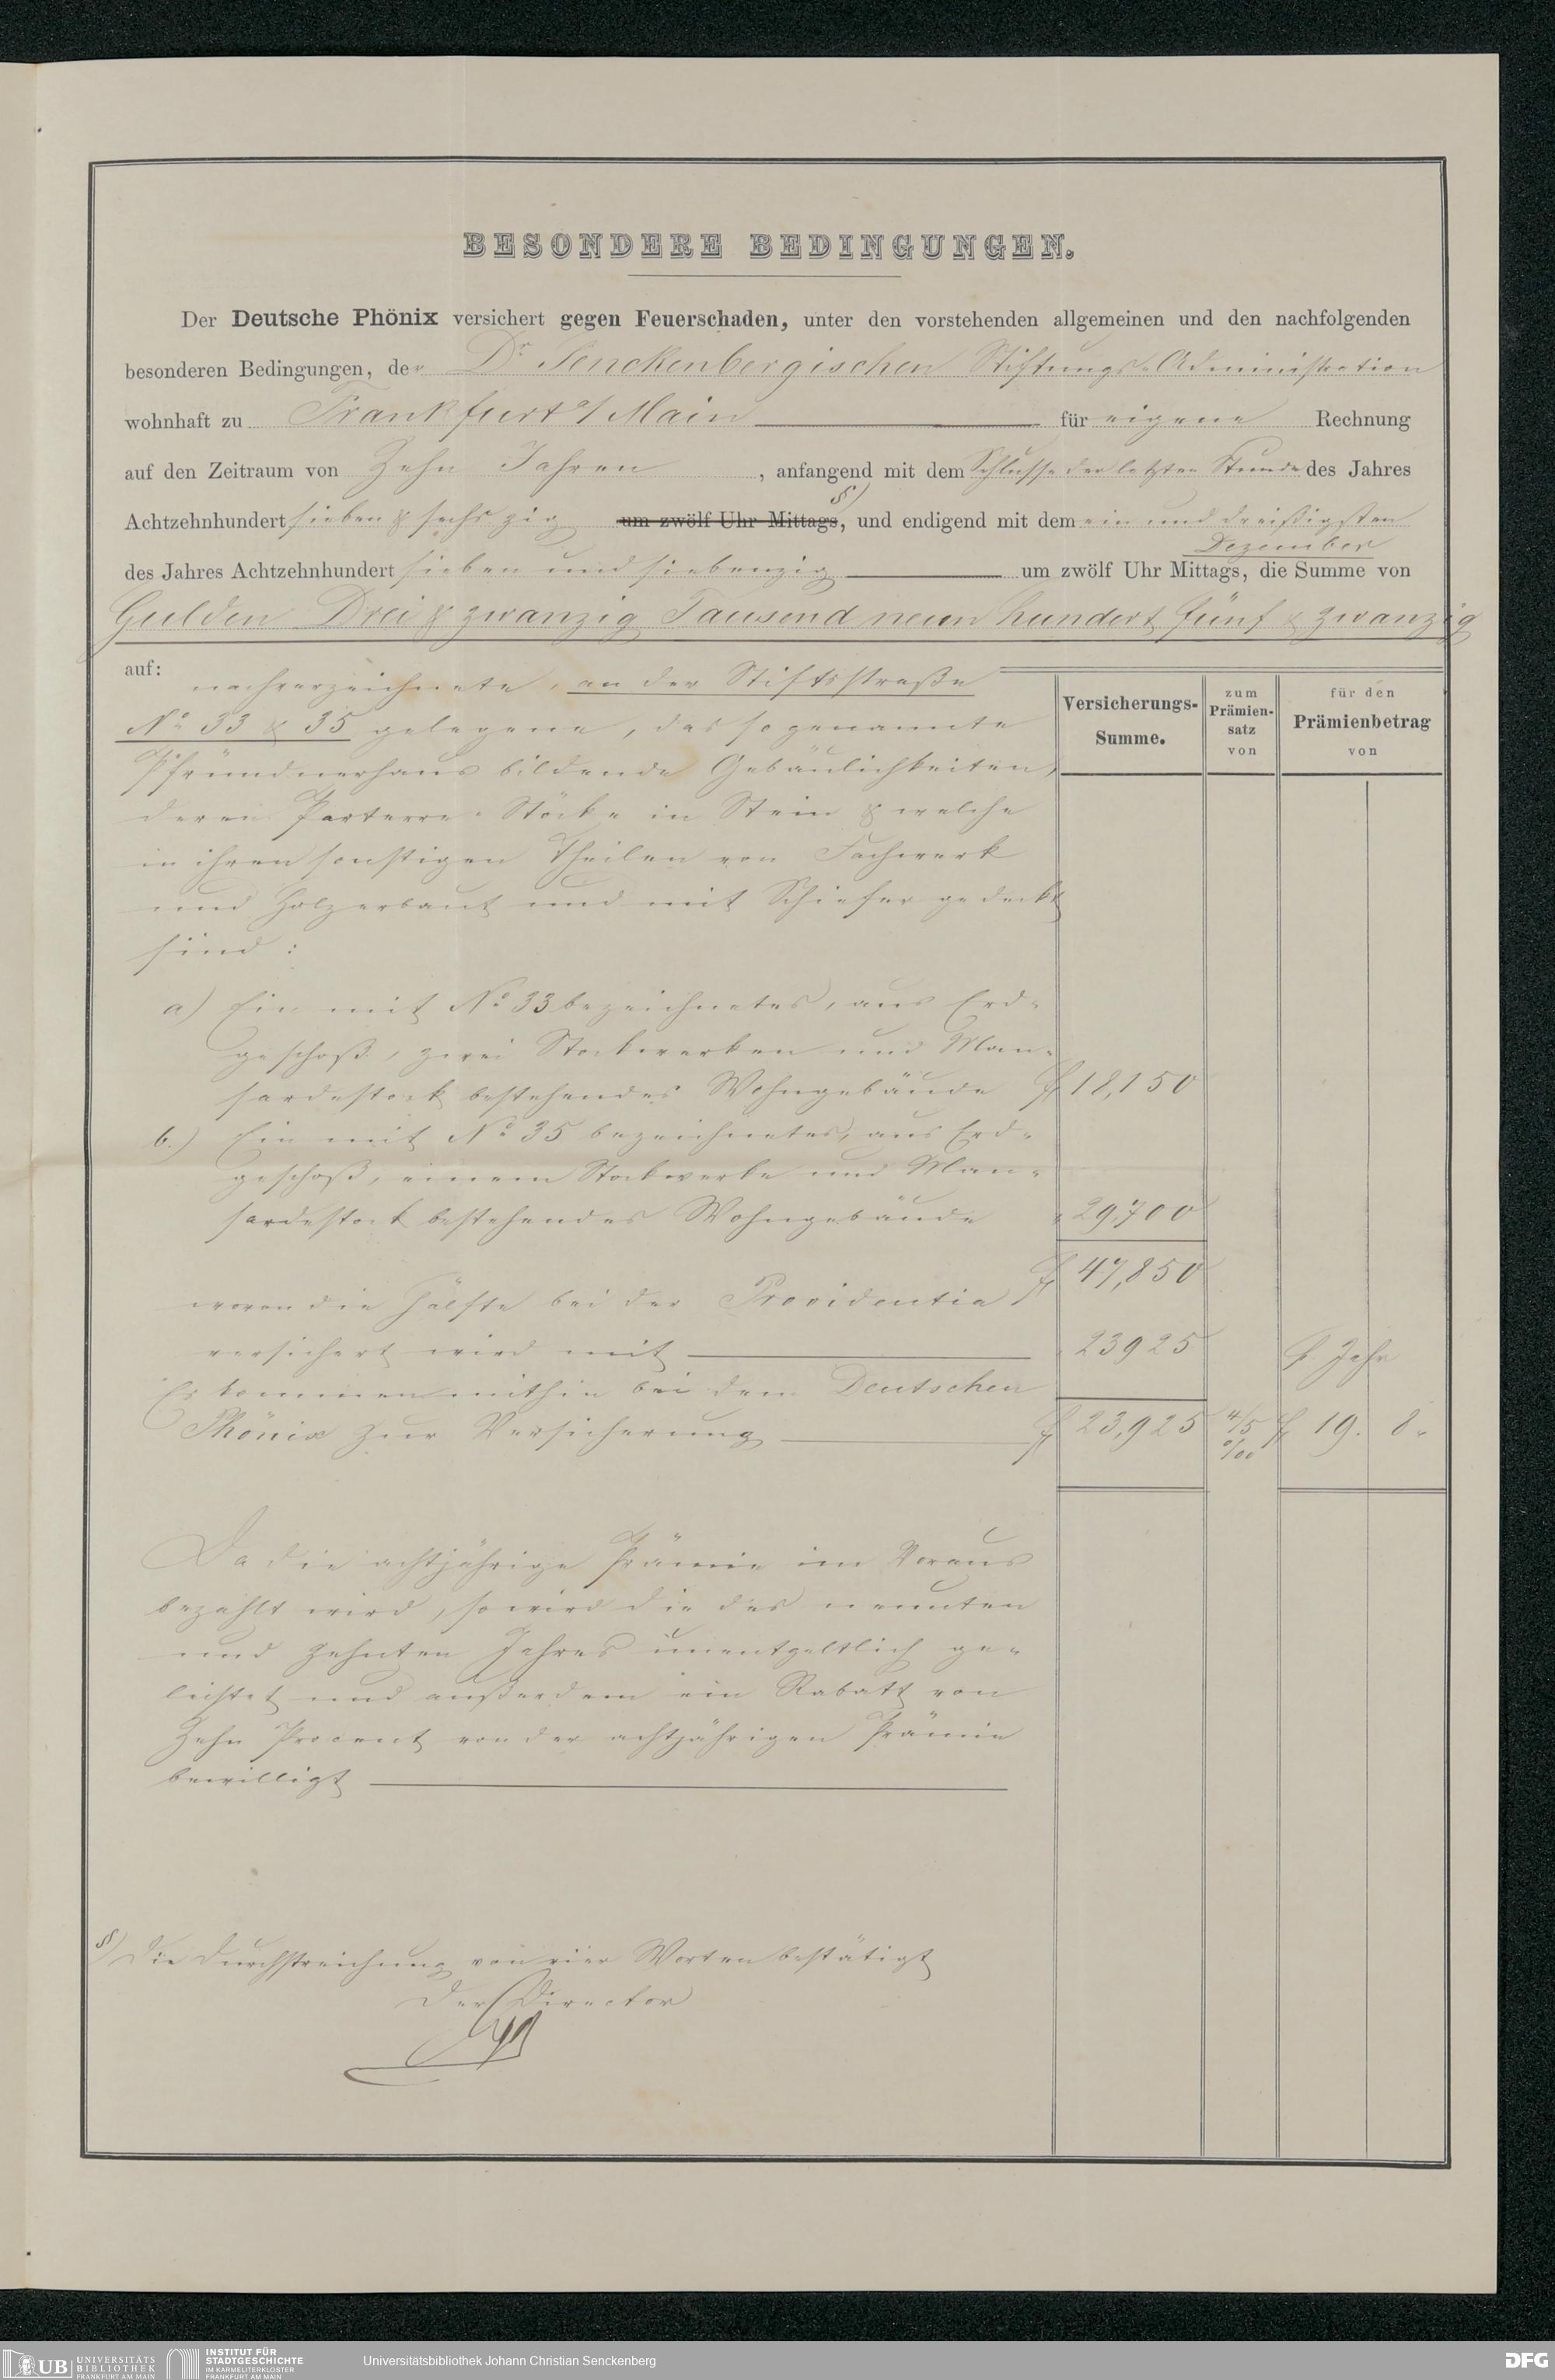 BESONDERE BEDINGUNGEN.
Der Deutsche Phönix versichert gegen Feuerschaden, unter den vorstehenden allgemeinen und den nachfolgenden
besonderen Bedingungen, der Dr. Senckenbergischen Stiftungs-Administration
wohnhaft zu Frankfurt a/Main für eigene Rechnung
auf den Zeitraum von Zehn Jahren, anfangend mit dem Schlusse der letzten Stunde des Jahres
§)
Achtzehnhundert sieben & sechszig um zwölf Uhr Mittags, und endigend mit dem ein und dreißigsten
Dezember
des Jahres Achtzehnhundert sieben und siebenzig um zwölf Uhr Mittags, die Summe von
Gulden Drei & zwanzig Tausend neun hundert fünf & zwanzig
auf: nachverzeichnete, an der Stiftsstraße
No. 33 & 35 gelegene, das sogenannte
Pfründnerhaus bildende Gebäulichkeiten,
deren Parterre-Stöcke in Stein & welche
in ihren sonstigen Theilen von Fachwerk
und Holz erbaut und mit Schiefer gedeckt
sind:
Versicherungs-Summe.
zum Prämien-satz von
für den Prämienbetrag von
a) Ein mit No. 33 bezeichnetes, aus Erd-
geschoß, zwei Stockwerken und Man-
sardestock bestehendes Wohngebäude f 18,150
b.) Ein mit No. 35 bezeichnetes, aus Erd-
geschoß, einem Stockwerke und Man-
sardestock bestehendes Wohngebäude " 29,700
f 47,850
wovon die Hälfte bei der Providentia
versichert wird mit 23925
Es kommen mithin bei dem Deutschen
Phönix zur Versicherung f 23,925 4/5 %00 f 19. 8.
Jahr
Da die achtjährige Prämie im Voraus
bezahlt wird, so wird die des neunten
und zehnten Jahres unentgeltlich ge-
leistet und außerdem ein Rabatt von
Zehn Procent von der achtjährigen Prämie
bewilligt
§) Die Durchstreichung von vier Worten bestätigt
Der Director
UB UNIVERSITÄTS
BIBLIOTHEK
FRANKFURT AM MAIN
INSTITUT FÜR
STADTGESCHICHTE
IM KARMELITERKLOSTER
FRANKFURT AM MAIN
Universitätsbibliothek Johann Christian Senckenberg
DFG